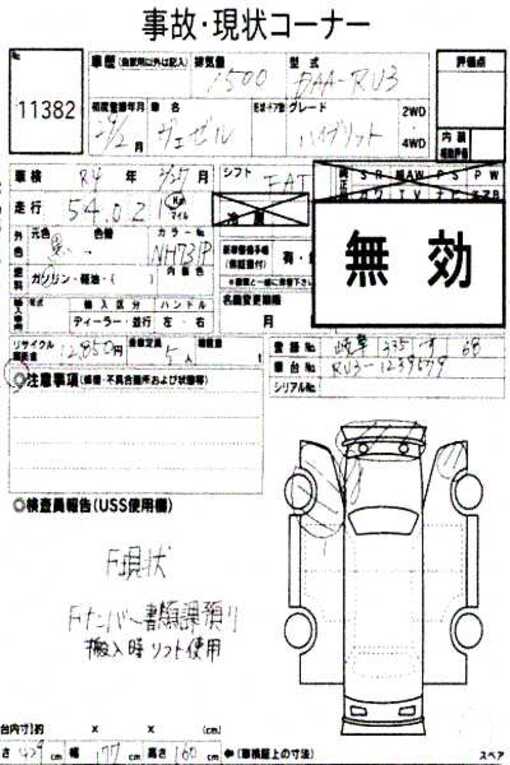 事故・現状コーナー
No. 11382
車歴 (自家用以外は記入) 排気量 1500 型式 DAA-RU3 評価点
初度登録年月 29/2月 車名 ヴェゼル 形状・ドア型 グレード ハイブリット 2WD・4WD 内装 補助評価
車検 R4年 2/27月 シフト FAT SR AW PS PW
走行 54,021 Km マイル 冷房 カワ TV ナビ エアB
外色 元色 黒 色替 カラーNo. NH731P 内装色 新車整備手帳 (保証書付) 有・ 無効
燃料 ガソリン・軽油・( ) 名義変更期限 月
輸入車両 年式 輸入区分 ハンドル
ディーラー・並行 左・右
リサイクル預託金 12,850円 乗車定員 5人 積載量 t 登録No. 岐阜 335 す 68
車台No. RU3-1239579
シリアルNo.
◎注意事項 (修復・不具合箇所および状態等)
◎検査員報告 (USS使用欄)
F現状
Fナンバー書類課預り
搬入時リフト使用
台内寸)約 × × (cm)
さ 429 cm 幅 177 cm 高さ 160 cm ←(車検証上の寸法) スペア